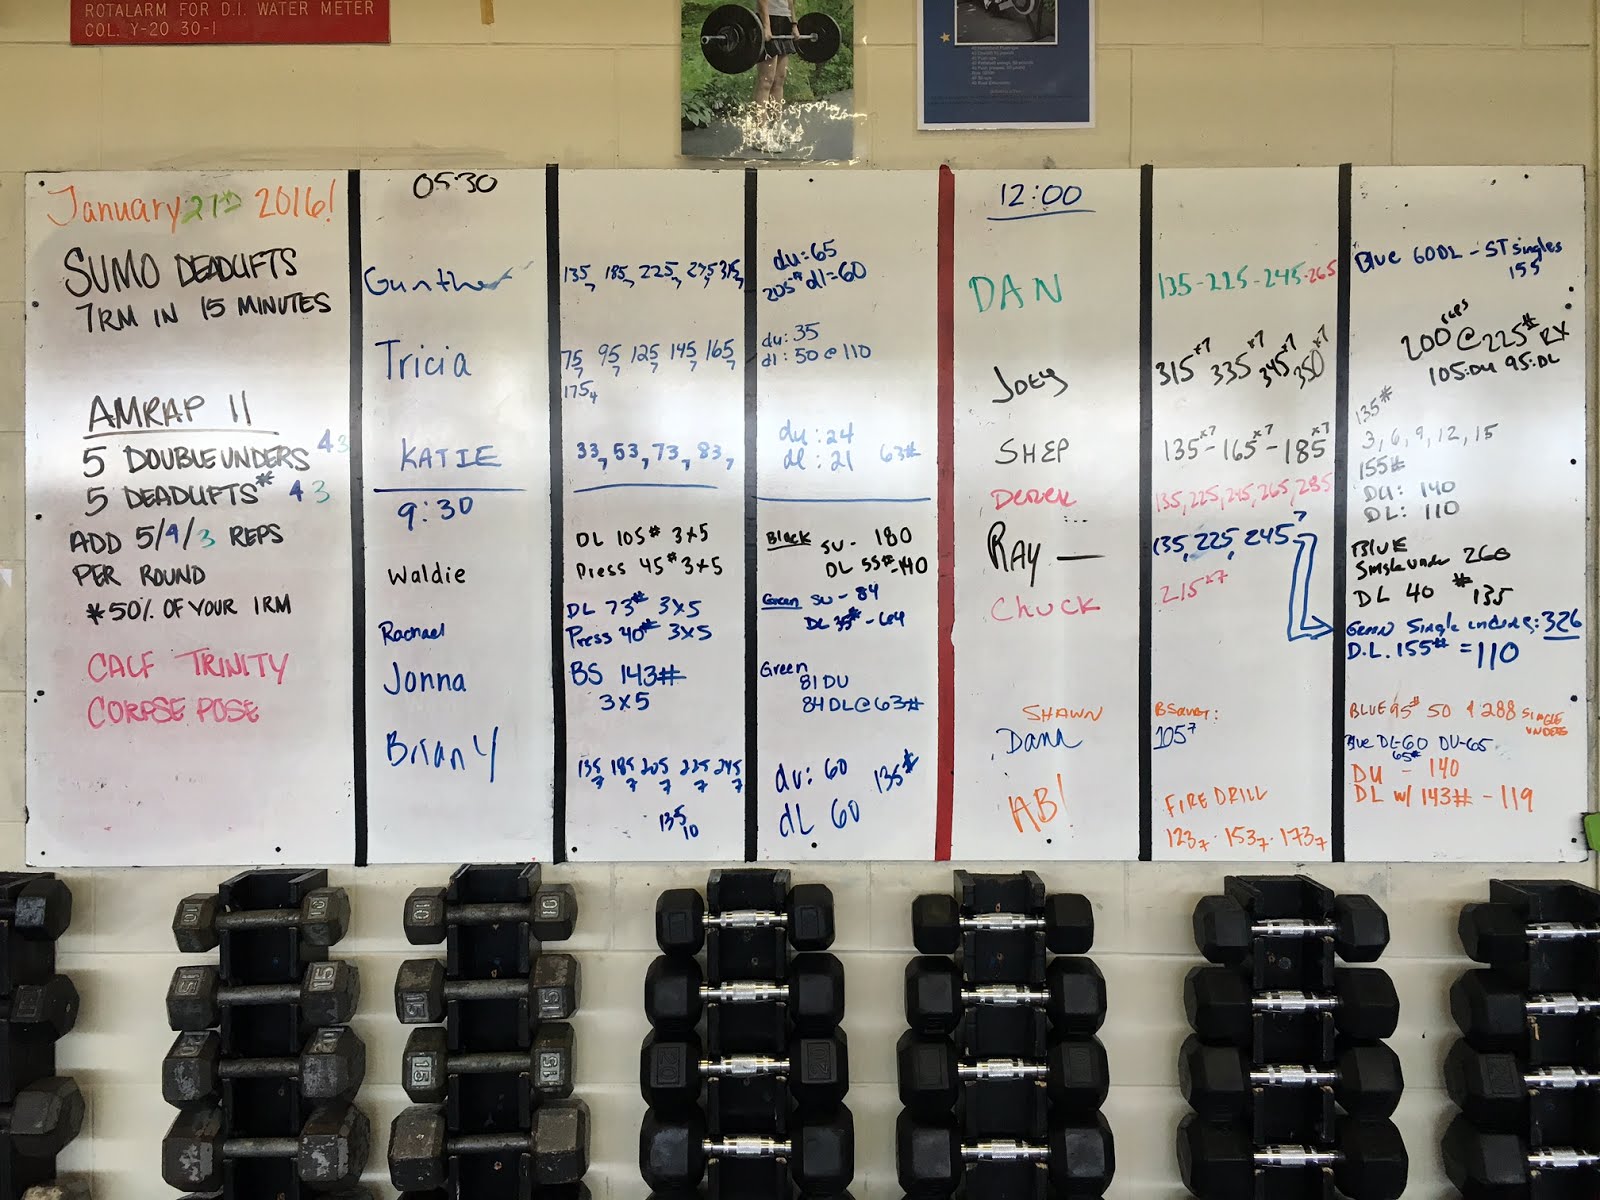 ROTALARM FOR D.I. WATER METER
COL. Y-20 30-1
January 21st 2016!
SUMO DEADLIFTS
7RM IN 15 MINUTES
AMRAP 11
5 DOUBLEUNDERS 4 3
5 DEADLIFTS* 4 3
ADD 5/4/3 REPS
PER ROUND
*50% OF YOUR 1RM
CALF TRINITY
CORPSE POSE
05:30
Gunther
135, 185, 225, 275, 315,
du: 65
205# dl=60
Tricia
75 95 125 145 165
7 7 7 7 7
175 4
du: 35
dl: 50 @ 110
KATIE
33, 53, 73, 83,
du: 24
dl: 21 63#
9:30
Waldie
DL 105# 3x5
Press 45# 3x5
Black SU - 180
DL 55# - 140
Rachael
DL 73# 3x5
Press 40# 3x5
Green SU - 84
DL 35# - 64
Jonna
BS 143#
3x5
Green
81 DU
84 DL @ 63#
Brian Y
135 185 205 225 245
7 7 7 7 7
135 10
du: 60 135#
dL 60
12:00
DAN
135-225-245-265
Blue 60DL - ST singles
155
Joey
315x7 335x7 345x7 350x7
200 reps @ 225# RX
105:DU 95:DL
SHEP
135x7-165x7-185x7
135#
3, 6, 9, 12, 15
155#
Derek
135, 225, 245, 265, 285
DU: 140
DL: 110
RAY —
135, 225, 245 7
BLUE
Single under 260
DL 40 # 135
Chuck
215x7
Green Single unders: 326
D.L. 155# = 110
SHAWN
BSquat:
BLUE 95# 50 & 288 SINGLE UNDERS
Dana
105 7
Blue DL-60 DU-65
65#
AB!
FIRE DRILL
123 7 · 153 7 · 173 7
DU - 140
DL w/ 143# - 119
10 10 10 10
15 15 15 15